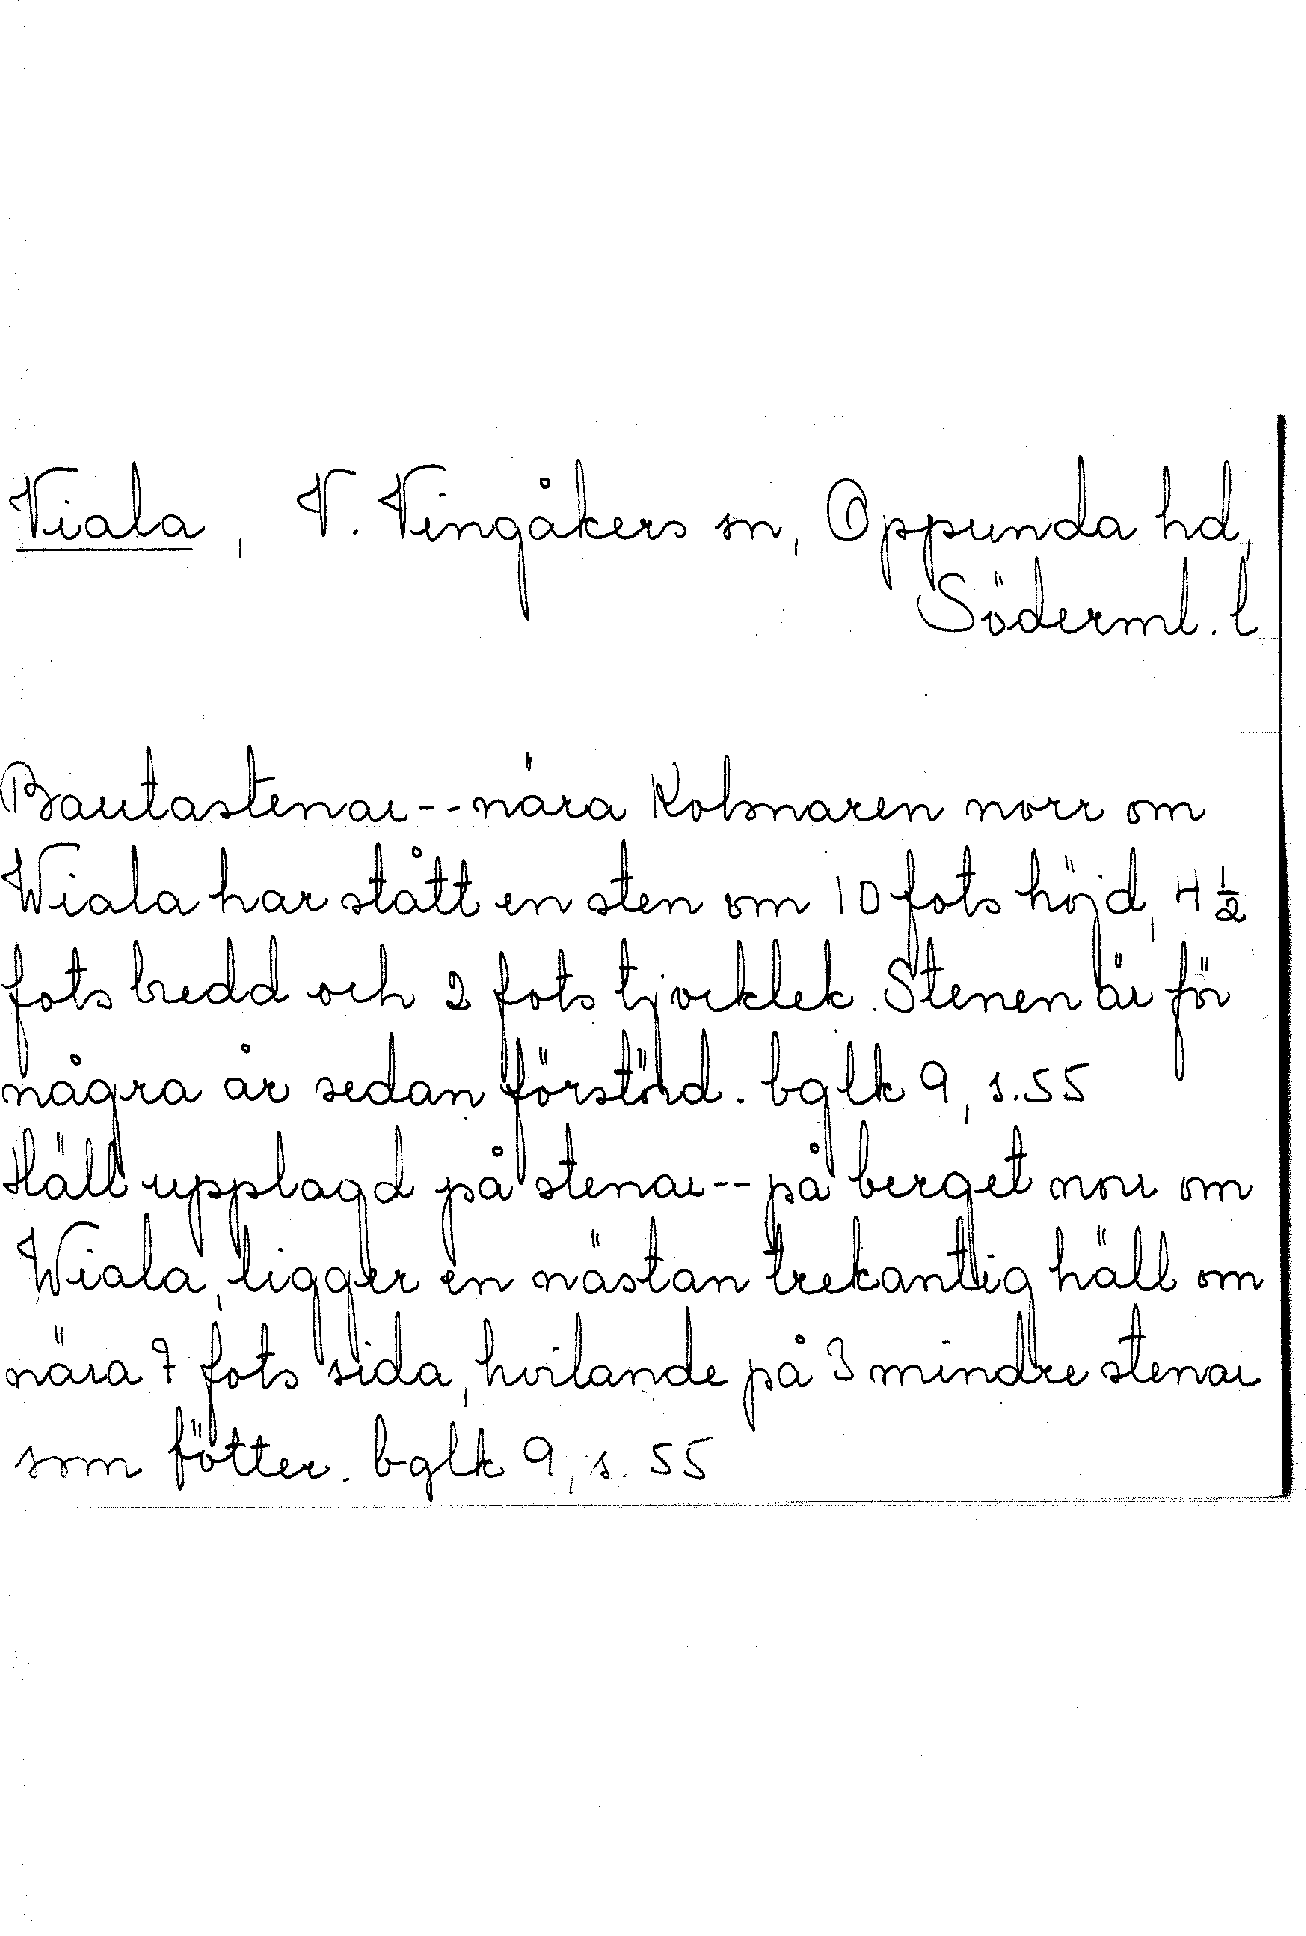 Viala, V. Vingåkers sn, Oppunda hd,
Söderml. l
Bautastenar--nära Kolsnaren norr om
Wiala har stått en sten om 10 fots höjd, 4 1/2
fots bredd och 2 fots tjocklek. Stenen är för
några år sedan förstörd. bglk 9, s. 55
Häll upplagd på stenar--på berget norr om
Wiala, ligger en nästan trekantig häll om
nära 7 fots sida, hvilande på 3 mindre stenar
som fötter. bglk 9, s. 55